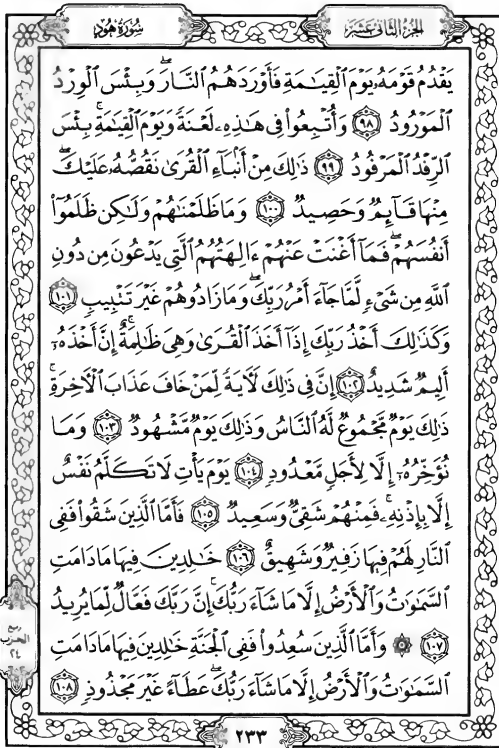 الجزء الثاني عشر
سورة هود
يَقْدُمُ قَوْمَهُۥ يَوْمَ ٱلْقِيَٰمَةِ فَأَوْرَدَهُمُ ٱلنَّارَۖ وَبِئْسَ ٱلْوِرْدُ
ٱلْمَوْرُودُ ۝٩٨ وَأُتْبِعُوا۟ فِى هَٰذِهِۦ لَعْنَةً وَيَوْمَ ٱلْقِيَٰمَةِۚ بِئْسَ
ٱلرِّفْدُ ٱلْمَرْفُودُ ۝٩٩ ذَٰلِكَ مِنْ أَنۢبَآءِ ٱلْقُرَىٰ نَقُصُّهُۥ عَلَيْكَۖ
مِنْهَا قَآئِمٌ وَحَصِيدٌ ۝١٠٠ وَمَا ظَلَمْنَٰهُمْ وَلَٰكِن ظَلَمُوٓا۟
أَنفُسَهُمْۖ فَمَآ أَغْنَتْ عَنْهُمْ ءَالِهَتُهُمُ ٱلَّتِى يَدْعُونَ مِن دُونِ
ٱللَّهِ مِن شَىْءٍ لَّمَّا جَآءَ أَمْرُ رَبِّكَۖ وَمَا زَادُوهُمْ غَيْرَ تَتْبِيبٍ ۝١٠١
وَكَذَٰلِكَ أَخْذُ رَبِّكَ إِذَآ أَخَذَ ٱلْقُرَىٰ وَهِىَ ظَٰلِمَةٌۚ إِنَّ أَخْذَهُۥٓ
أَلِيمٌ شَدِيدٌ ۝١٠٢ إِنَّ فِى ذَٰلِكَ لَءَايَةً لِّمَنْ خَافَ عَذَابَ ٱلْءَاخِرَةِۚ
ذَٰلِكَ يَوْمٌ مَّجْمُوعٌ لَّهُ ٱلنَّاسُ وَذَٰلِكَ يَوْمٌ مَّشْهُودٌ ۝١٠٣ وَمَا
نُؤَخِّرُهُۥٓ إِلَّا لِأَجَلٍ مَّعْدُودٍ ۝١٠٤ يَوْمَ يَأْتِ لَا تَكَلَّمُ نَفْسٌ
إِلَّا بِإِذْنِهِۦۚ فَمِنْهُمْ شَقِىٌّ وَسَعِيدٌ ۝١٠٥ فَأَمَّا ٱلَّذِينَ شَقُوا۟ فَفِى
ٱلنَّارِ لَهُمْ فِيهَا زَفِيرٌ وَشَهِيقٌ ۝١٠٦ خَٰلِدِينَ فِيهَا مَا دَامَتِ
ٱلسَّمَٰوَٰتُ وَٱلْأَرْضُ إِلَّا مَا شَآءَ رَبُّكَۚ إِنَّ رَبَّكَ فَعَّالٌ لِّمَا يُرِيدُ
۝١٠٧ وَأَمَّا ٱلَّذِينَ سُعِدُوا۟ فَفِى ٱلْجَنَّةِ خَٰلِدِينَ فِيهَا مَا دَامَتِ
ٱلسَّمَٰوَٰتُ وَٱلْأَرْضُ إِلَّا مَا شَآءَ رَبُّكَۖ عَطَآءً غَيْرَ مَجْذُوذٍ ۝١٠٨
ربع
الحزب
٢٤
٢٣٣